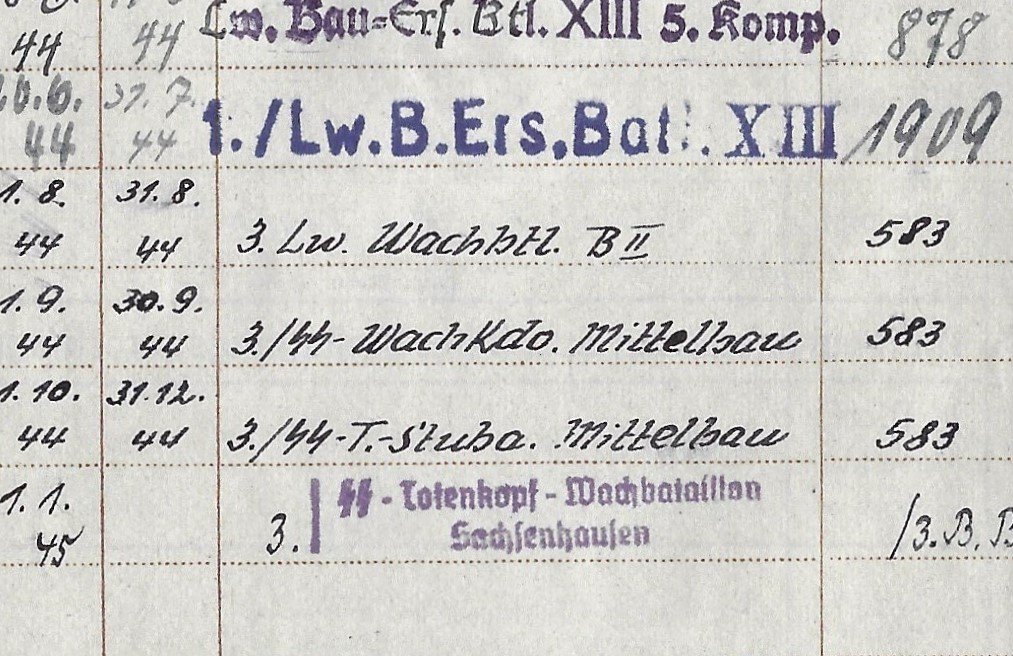 44 44 Lw. Bau=Ers. Btl. XIII 5. Komp. 878
10.6. 31.7.
44 44 1./Lw.B.Ers.Batl. XIII 1909
1.8. 31.8.
44 44 3. Lw. Wachbtl. B II 583
1.9. 30.9.
44 44 3./SS-WachKdo. Mittelbau 583
1.10. 31.12.
44 44 3./SS-T.-Stuba. Mittelbau 583
1.1.
45 3. SS-Totenkopf-Wachbataillon
Sachsenhausen /3.B.B